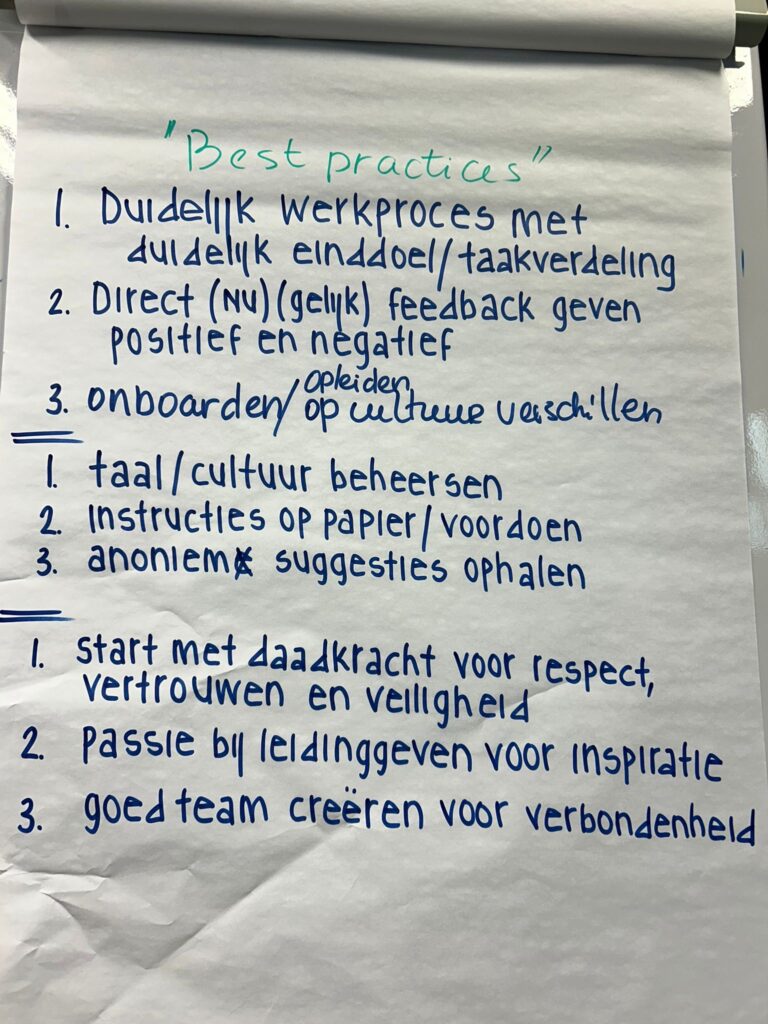 "Best practices"
1. Duidelijk werkproces met
duidelijk einddoel/taakverdeling
2. Direct (NU) (gelijk) feedback geven
positief en negatief
opleiden
3. onboarden/op cultuur verschillen
1. taal/cultuur beheersen
2. instructies op papier/voordoen
3. anoniem suggesties ophalen
1. start met daadkracht voor respect,
vertrouwen en veiligheid
2. passie bij leidinggeven voor inspiratie
3. goed team creëren voor verbondenheid